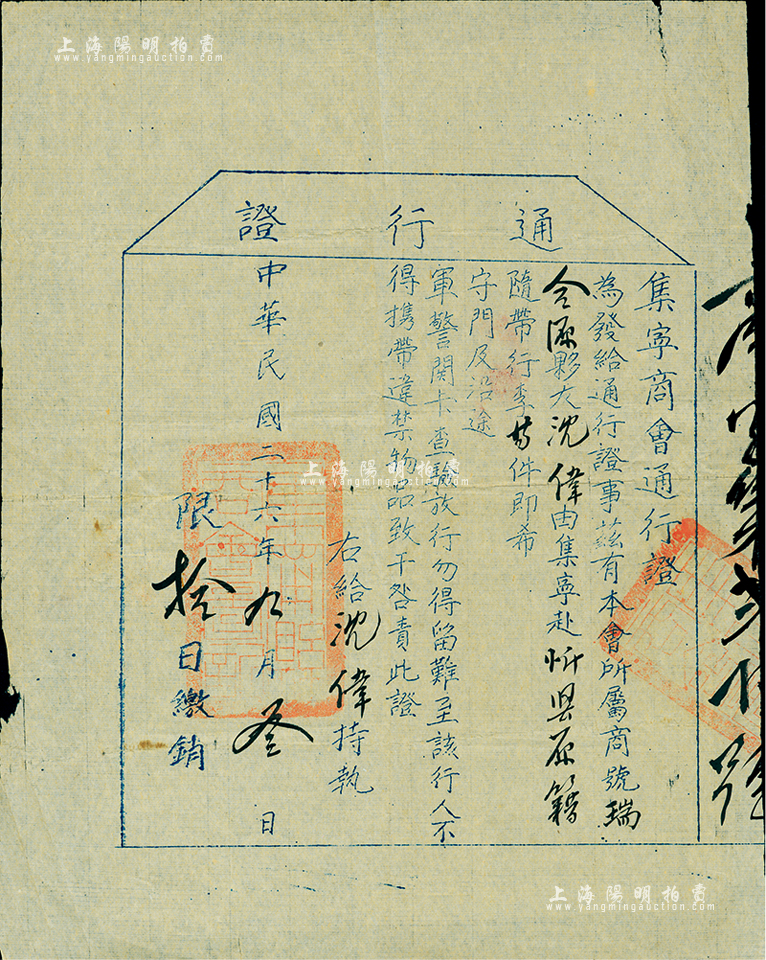 通行證
集寧商會通行證
為發給通行證事茲有本會所屬商號瑞
合源夥友沈偉由集寧赴忻县原籍
隨帶行李 件即希
守門及沿途
軍警関卡查驗放行勿得留難至該行人不
得携帶違禁物品致干咎責此證
右給沈偉持執
中華民國二十六年九月叁日
限拾日繳銷
上海陽明拍賣
www.yangmingauction.com
上海陽明拍賣
www.yangmingauction.com
上海陽明拍賣
www.yangmingauction.com